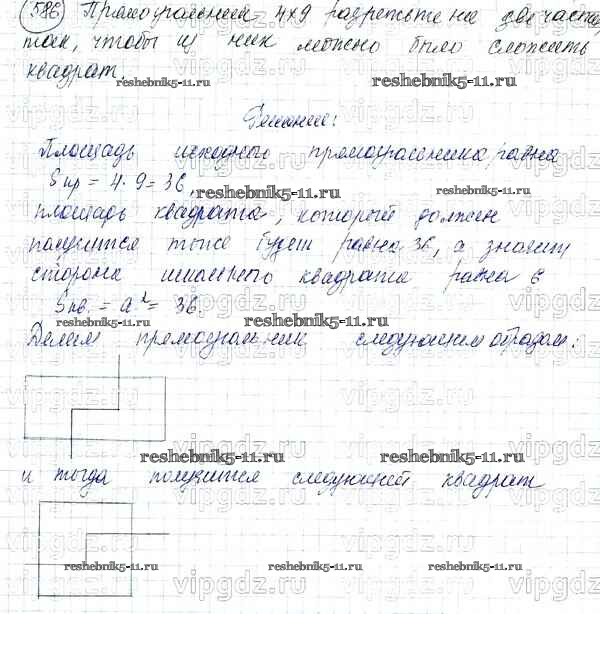 586 Прямоугольник 4x9 разрежьте на две части,
так, чтобы из них можно было сложить
квадрат.
reshebnik5-11.ru
Решение:
Площадь исходного прямоугольника равна
Sпр = 4 · 9 = 36,
reshebnik5-11.ru
площадь квадрата, который должен
получится тоже будет равна 36, а значит
сторона искомого квадрата равна 6
Sкв = a² = 36.
reshebnik5-11.ru
Делим прямоугольник следующим образом:
reshebnik5-11.ru reshebnik5-11.ru
и тогда получится следующий квадрат
reshebnik5-11.ru reshebnik5-11.ru reshebnik5-11.ru
vipgdz.ru vipgdz.ru vipgdz.ru